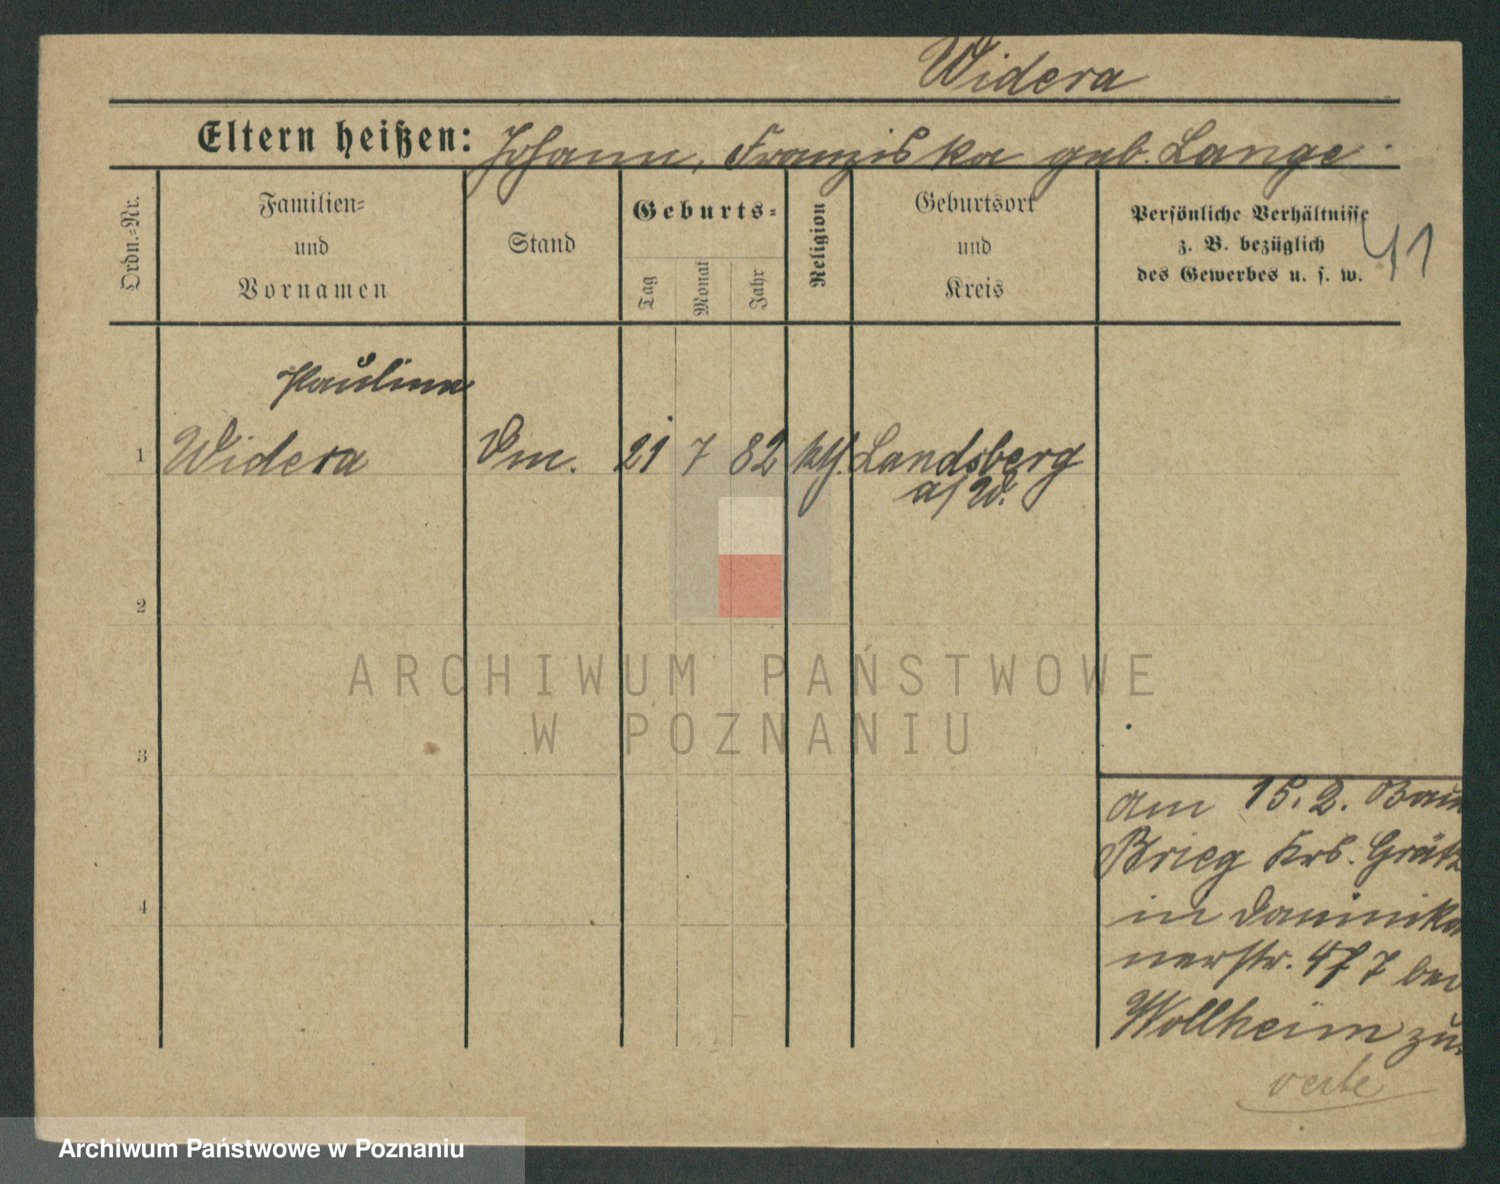 Widera
Eltern heißen: Johann, Franziska geb. Lange
Ordn.=Nr.
Familien=
und
Vornamen
Stand
Geburts=
Tag
Monat
Jahr
Religion
Geburtsort
und
Kreis
Persönliche Verhältnisse
z. B. bezüglich
des Gewerbes u. s. w.
41
Paulina
1 Widera Dm. 21 7 82 kth. Landsberg
a/W.
2
3
4
am 15. 2.
Brieg Krs. Grätz
in Dominika
nerstr. 4/5 7 bei
Wollheim zu.
verte
ARCHIWUM PAŃSTWOWE
W POZNANIU
Archiwum Państwowe w Poznaniu